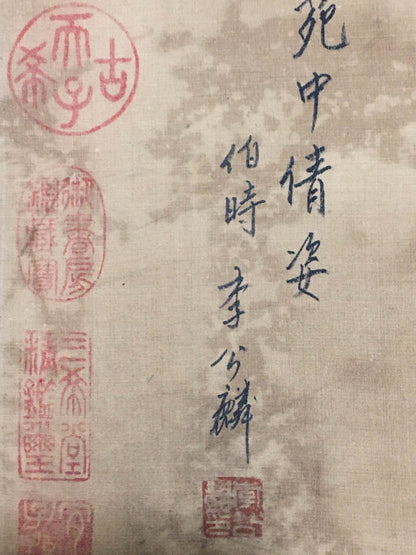 苑中倩姿
伯時 李公麟
古希天子
御書房
鑑藏寶
三希堂
精鑑璽